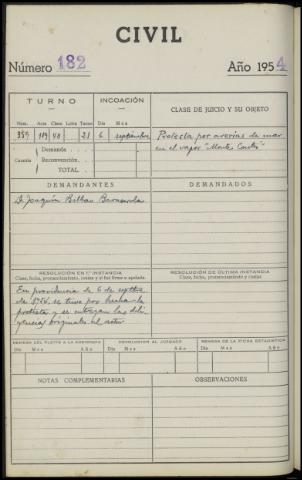 CIVIL
Número 182
Año 1954
TURNO
INCOACIÓN
CLASE DE JUICIO Y SU OBJETO
Núm. Acta Clase Letra Turno Día Mes
359 119 48 21 6 septiembre
Protesta por averías de mar
en el vapor "Montes
Cuantía
Demanda
Reconvención
TOTAL
DEMANDANTES
DEMANDADOS
D. Joaquín Bilbao
RESOLUCIÓN EN 1.ª INSTANCIA
Clase, fecha, pronunciamiento, costas y si fué firme o apelada.
RESOLUCIÓN DE ÚLTIMA INSTANCIA
Clase, fecha, pronunciamiento y costas
En providencia de 6 de septbre
de 1954, se tuvo por hecha la
protesta y se entregan las dili
gencias originales al actor
REMESA DEL PLEITO A LA AUDIENCIA
DEVOLUCIÓN AL JUZGADO
REMESA DE LA FICHA ESTADÍSTICA
Día Mes Año Día Mes Año Día Mes Año
NOTAS COMPLEMENTARIAS
OBSERVACIONES